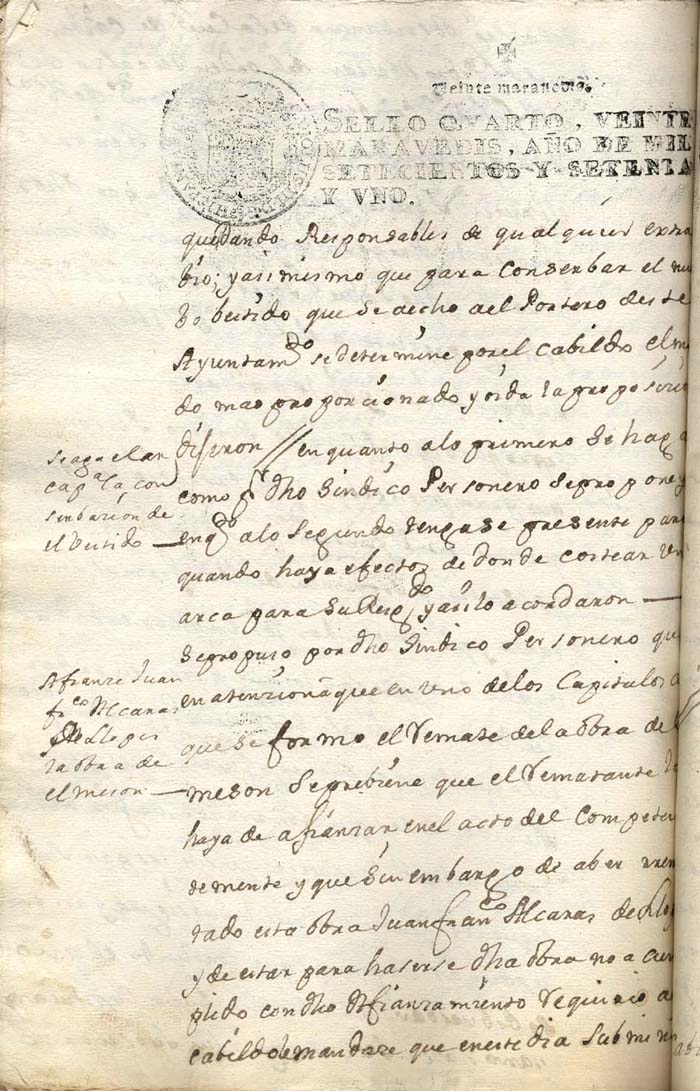 Veinte maravedis.
SELLO QVARTO, VEINTE
MARAVEDIS, AÑO DE MIL
SETECIENTOS Y SETENTA
Y VNO.
quedando Responsables de qualquier extra
bio; y asi mismo que para Conserbar el nue
bo bestido que se a echo a el Portero de este
Ayuntamto se determine por el Cabildo el mo
do mas proporcionado y oida la proposicio
dijeron // en quanto a lo primero se haga
como por dho Sindico Personero se propone y
en qto a lo segundo tengase presente para
quando haya efectos de donde costear un
arca para su Resgdo y asi lo acordaron —
Se aga el ar
ca pa la con
serbazion de
el bestido —
Se propuso por dho Sindico Personero que
en atenzion a que en uno de los Capitulos
que se formo el Remate de la obra de
meson se prebiene que el Rematante
haya de afianzar en el acto del Competen
temente y que sin embargo de aber rrema
tado esta obra Juan Franco Alcaras de Llo
y de estar para haserse dha obra no a cum
plido con dho Afianzamiento Requirio a
Cabildo mandase que en este dia Subminis
Afianze Juan
Frco Alcaras
de Llopis
la obra de
el meson —